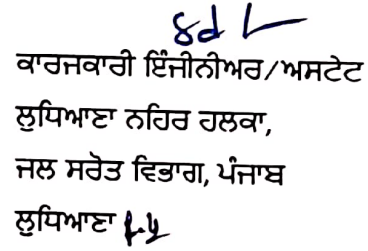 Sd
ਕਾਰਜਕਾਰੀ ਇੰਜੀਨੀਅਰ/ਅਸਟੇਟ
ਲੁਧਿਆਣਾ ਨਹਿਰ ਹਲਕਾ,
ਜਲ ਸਰੋਤ ਵਿਭਾਗ, ਪੰਜਾਬ
ਲੁਧਿਆਣਾ